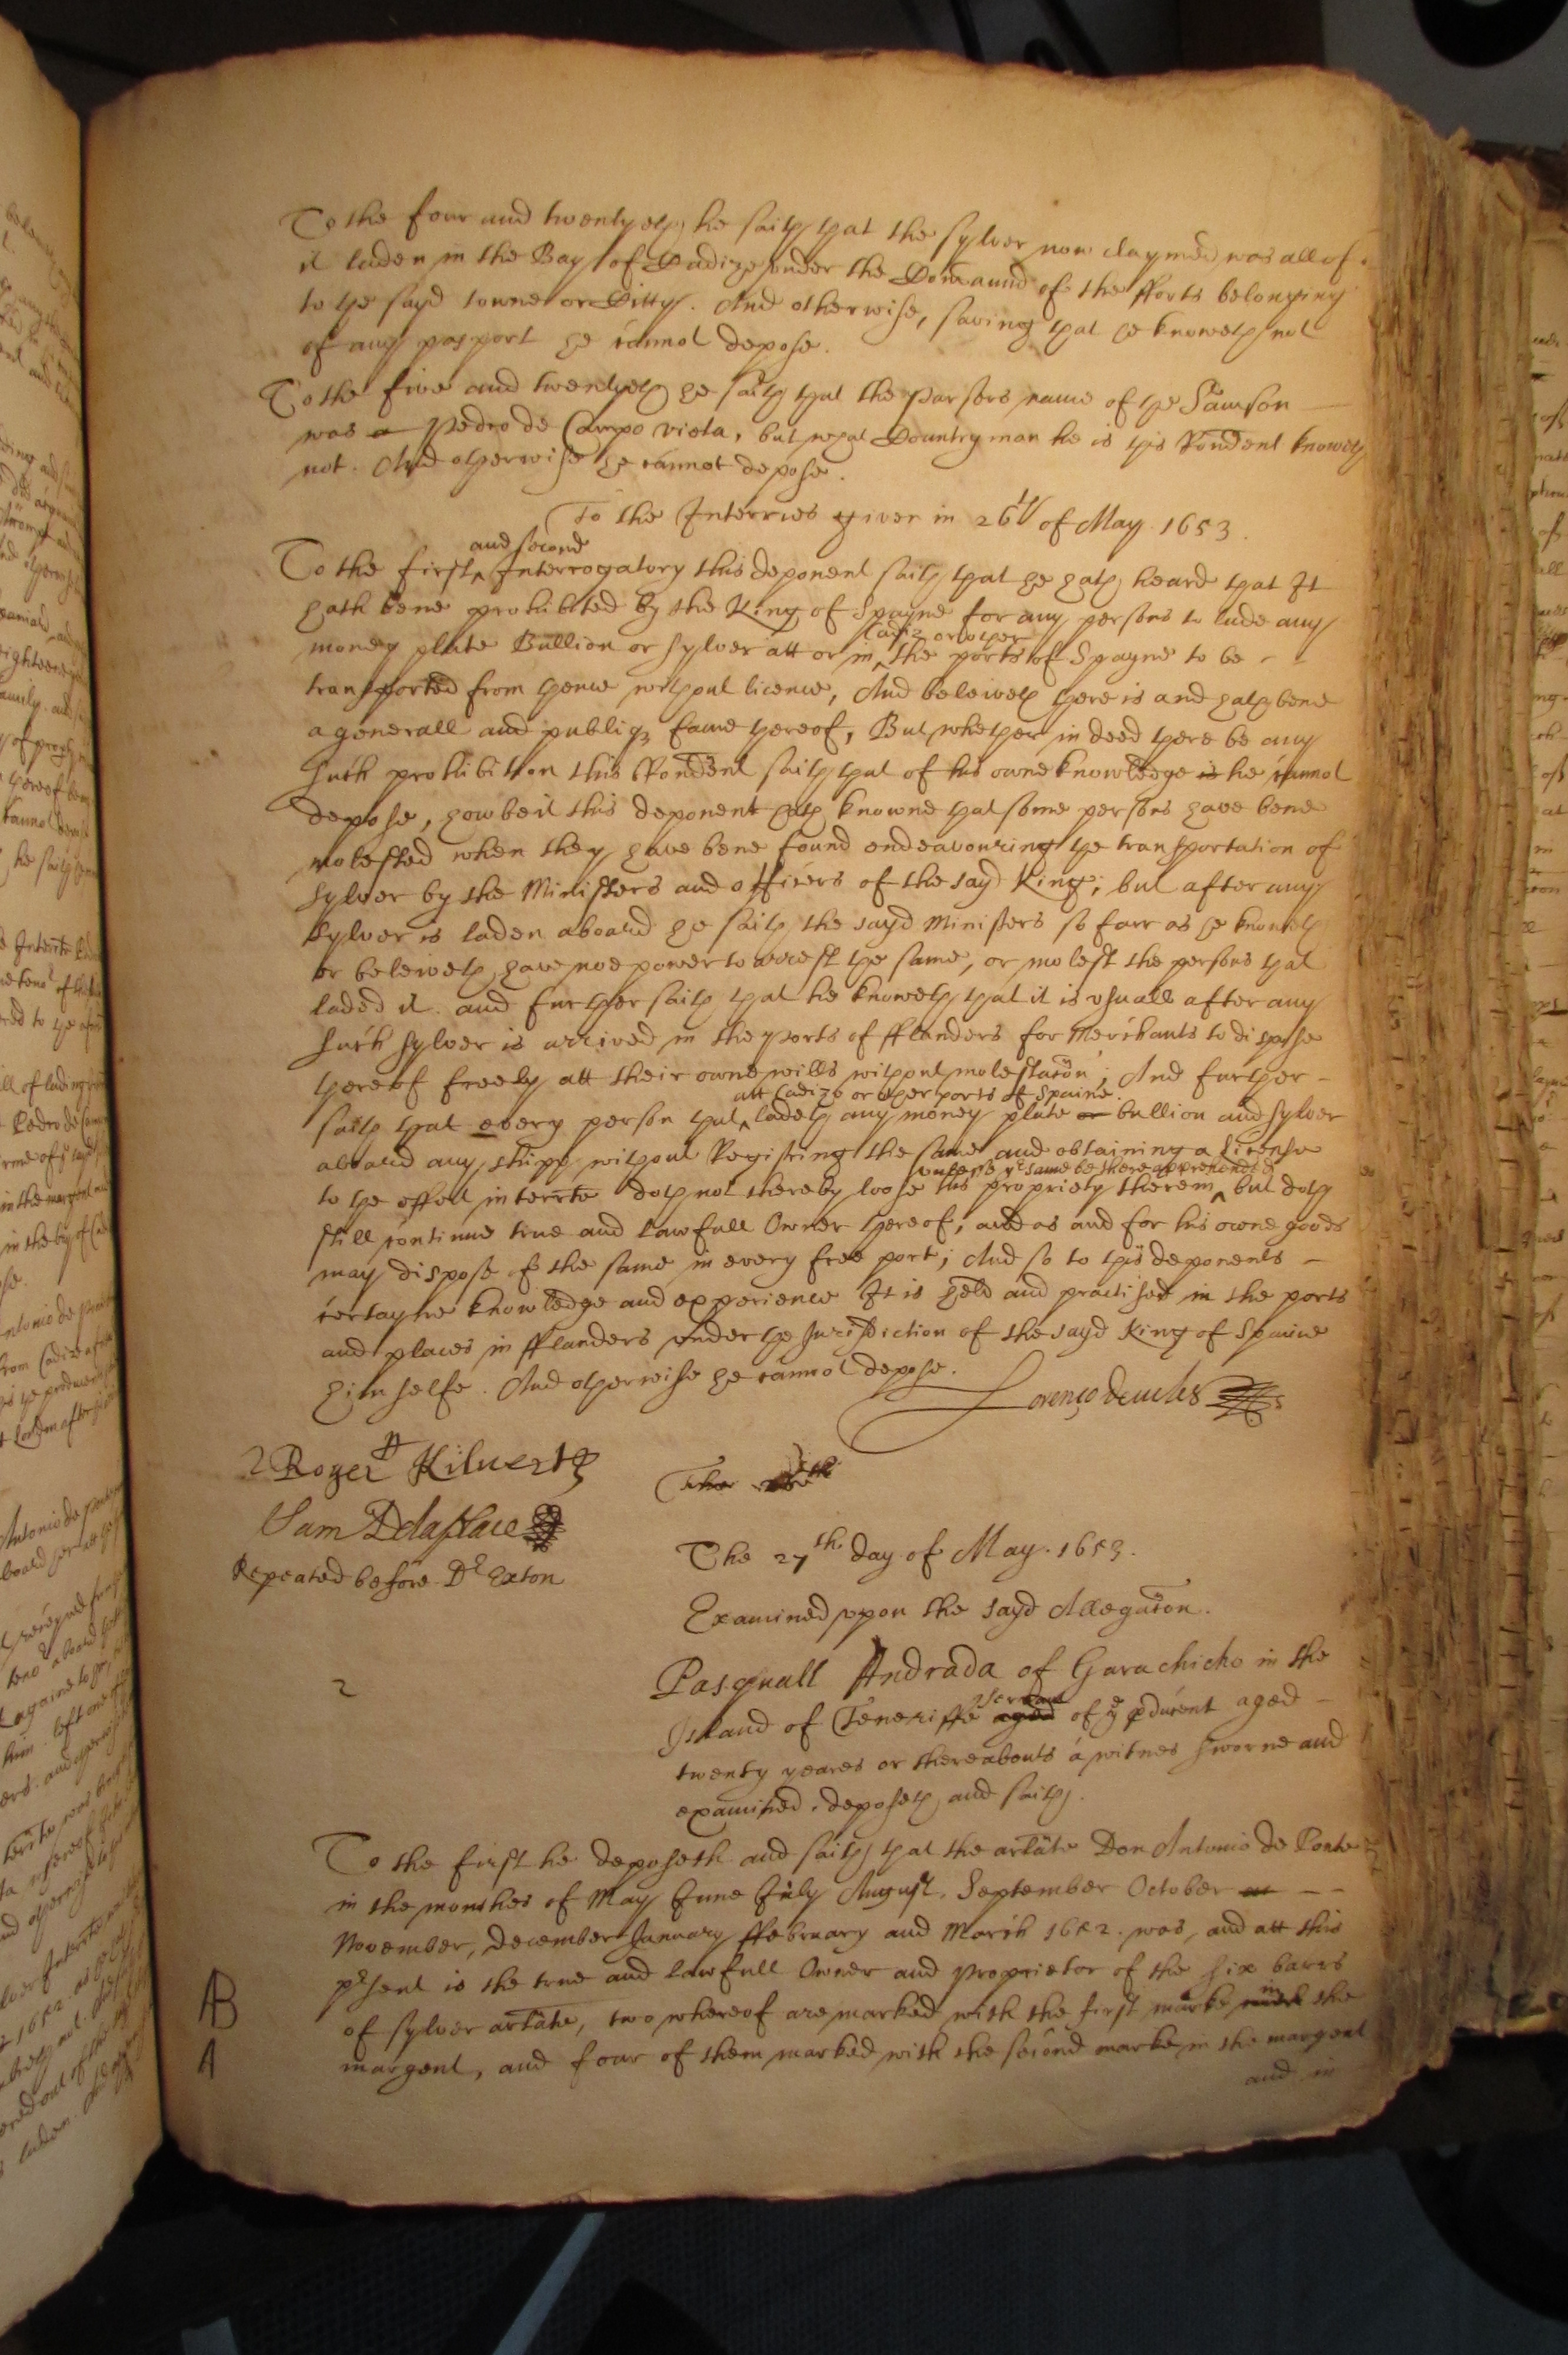 To the four and twentyeth he saith that the sylver now claymed was all of
it laden in the Bay of Cadize under the Comaund of the fforts belonging
to the sayd towne or Citty. And otherwise, saving that he knoweth not
of any pasport he cannot depose.
To the five and twentyeth he saith that the Pursers name of the Samson
was a Pedro de Campo vieta, but what Countryman he is this Rondent knoweth
not. And otherwise he cannot depose.
To the Interries given in 26th of May 1653.
and second
To the first Interrogatory this deponent saith that he hath heard that It
hath bene prohibited by the King of Spayne for any persons to lade any
Cadiz or other
money plate Bullion or sylver att or in the ports of Spayne to be
transported from thence without licence, And beleiveth there is and hath bene
a generall and publiq fame thereof, But whether in deed there be any
such prohibition this Rondent saith that of his owne knowledge is he cannot
depose, howbeit this deponent hath knowne that some persons have bene
molested when they have bene found endeavouring the transportation of
sylver by the Ministers and officers of the sayd King; but after any
sylver is laden aboard he saith the sayd Ministers so farr as he knoweth
or beleiveth have noe power to arrest the same, or molest the persons that
laded it. and further saith that he knoweth that it is usuall after any
such sylver is arrived in the ports of fflanders for Merchants to dispose
thereof freely att their owne wills without molestacon; And further
att Cadize or other ports of Spaine
saith that every person that ladeth any money plate or bullion and sylver
aboard any shipp without Registring the same and obtaining a License
unlesse ye same be there apprehended
to the effect interrte doth not thereby loose his propriety therein but doth
still continue true and lawfull Owner thereof, and as and for his owne goods
may dispose of the same in every free port; And so to this deponents
certayne knowledge and experience It is held and practised in the ports
and places in fflanders under the Jurisdiction of the sayd King of Spaine
himselfe. And otherwise he cannot depose.
Lorenço
Roger Kilvert
The 26th
Sam
The 27th day of May. 1653.
Repeated before Dr Exton
Examined upon the sayd Allegacon.
2
Pasquall Andrada of Garachicho in the
servant
Island of Teneriffe aged of ye pducent aged
twenty yeares or thereabouts a witnes sworne and
examined, deposeth and saith.
To the first he deposeth and saith that the arlate Don Antonio de Ponte
in the monthes of May June July August, September October
November, December January ffebruary and March 1652. was, and att this
present is the true and lawfull Owner and Proprietor of the six barrs
in
of sylver arlate, two whereof are marked with the first marke the
AB
margent, and four of them marked with the second marke in the margent
A
and in